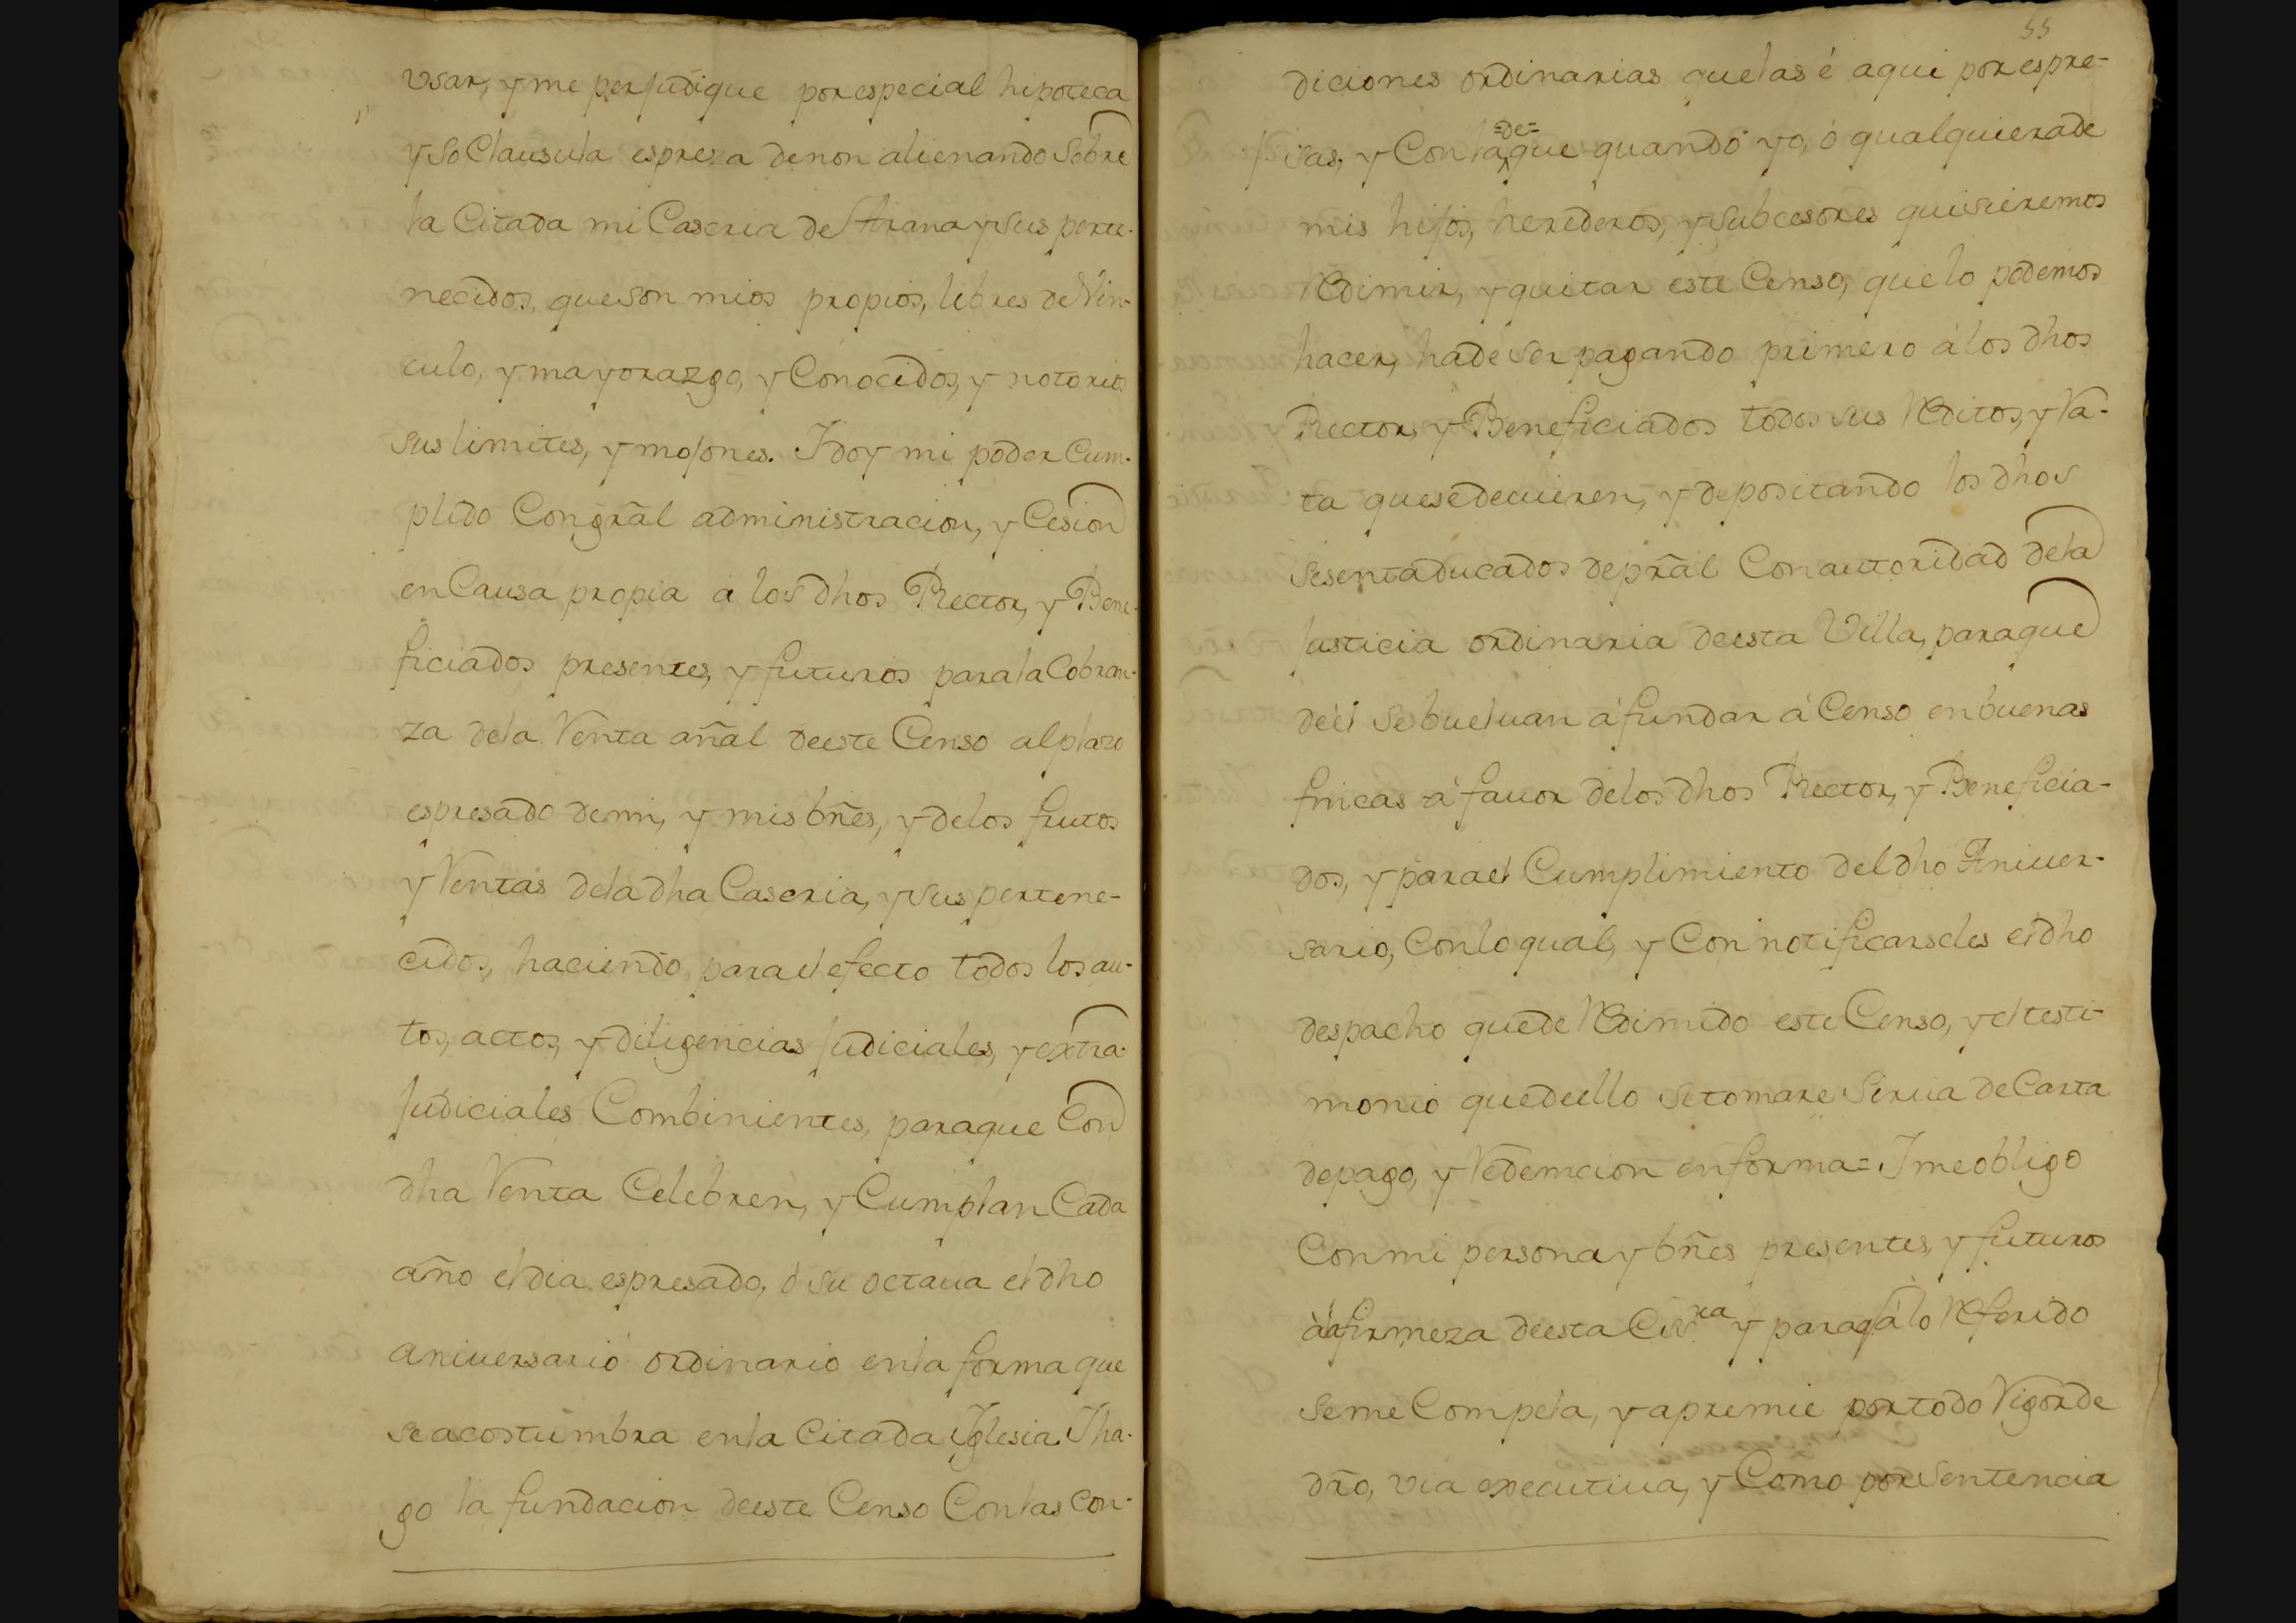 usar, y me perjudique por especial hipoteca
y so Clausula espresa de non alienando Sobre
la Citada mi Caseria de Arana y sus perte-
necidos, que son mios propios, libres de Vin-
culo, y mayorazgo, y Conocidos, y notorios
sus limites, y mojones. I doy mi poder Cum-
plido Con grãl administracion, y Cesion
en Causa propia á los dhos Rector, y Bene-
ficiados presentes, y futuros para la Cobran-
za de la Renta añal de este Censo al plazo
espresado de mi, y mis bñes, y de los frutos
y Rentas de la dha Caseria, y sus pertene-
cidos, haciendo para el efecto todos los au-
tos, actos, y diligencias Judiciales, y extra-
Judiciales Combinientes, para que Con
dha Renta Celebren, y Cumplan Cada
año el dia espresado, ó su octaua el dho
aniuersario ordinario en la forma que
se acostumbra en la Citada Iglesia. I ha-
go la fundacion de este Censo Con las con-
55
diciones ordinarias que las é aqui por espre-
sas, y Con la =de= que quando yo, ó qualquiera de
mis hijos, herederos, y subcesores quisieremos
Redimir, y quitar este Censo, que lo podemos
hacer, ha de ser pagando primero á los dhos
Rector, y Beneficiados todos sus Reditos, y Ra-
ta que se deuieren, y depositando los dhos
Sesenta ducados de prãl Con autoridad de la
Justicia ordinaria de esta Villa, para que
de él se bueluan á fundar á Censo en buenas
fincas á fauor de los dhos Rector, y Beneficia-
dos, y para el Cumplimiento del dho Aniuer-
sario, Con lo qual, y Con notificarseles el dho
despacho quede Redimido este Censo, y el testi-
monio que de ello se tomare Sirua de Carta
de pago, y Redemcion en forma = I me obligo
Con mi persona y bñes presentes, y futuros
á la firmeza de esta Essra y para q á lo Referido
se me Compela, y apremie por todo Rigor de
dro, via executiua, y Como por Sentencia